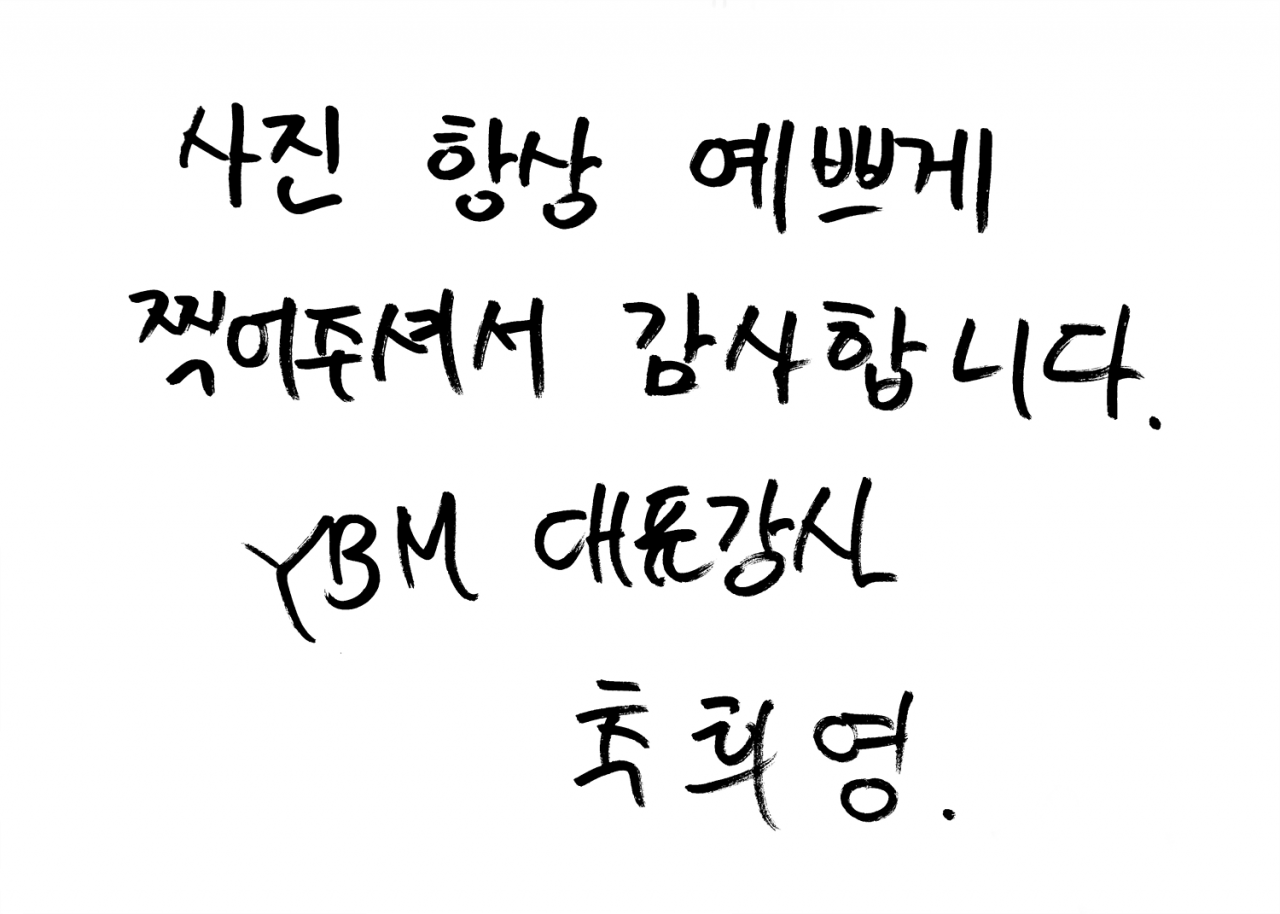 사진 항상 예쁘게
찍어주셔서 감사합니다.
YBM 대표강사
축희영.